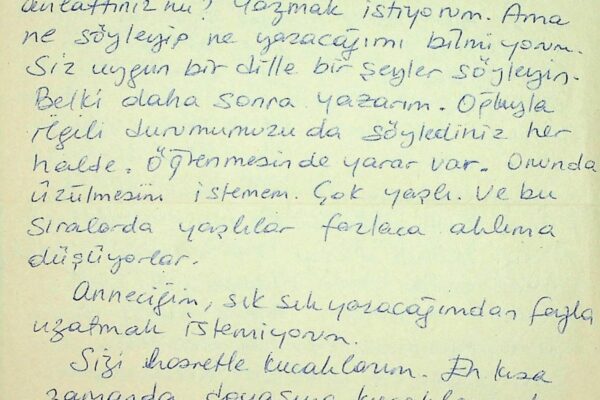 anlattınız mı? Yazmak istiyorum. Ama
ne söyleyip ne yazacağımı bilmiyorum.
Siz uygun bir dille bir şeyler söyleyin.
Belki daha sonra yazarım. Oğluyla
ilgili durumumuzu da söylediniz her
halde. Öğrenmesinde yarar var. Onunda
üzülmesini istemem. Çok yaşlı. Ve bu
sıralarda yaşlılar fazlaca aklıma
düşüyorlar.
Anneciğim, sık sık yazacağımdan fazla
uzatmak istemiyorum.
Sizi hasretle kucaklarım. En kısa
zamanda doyasıya